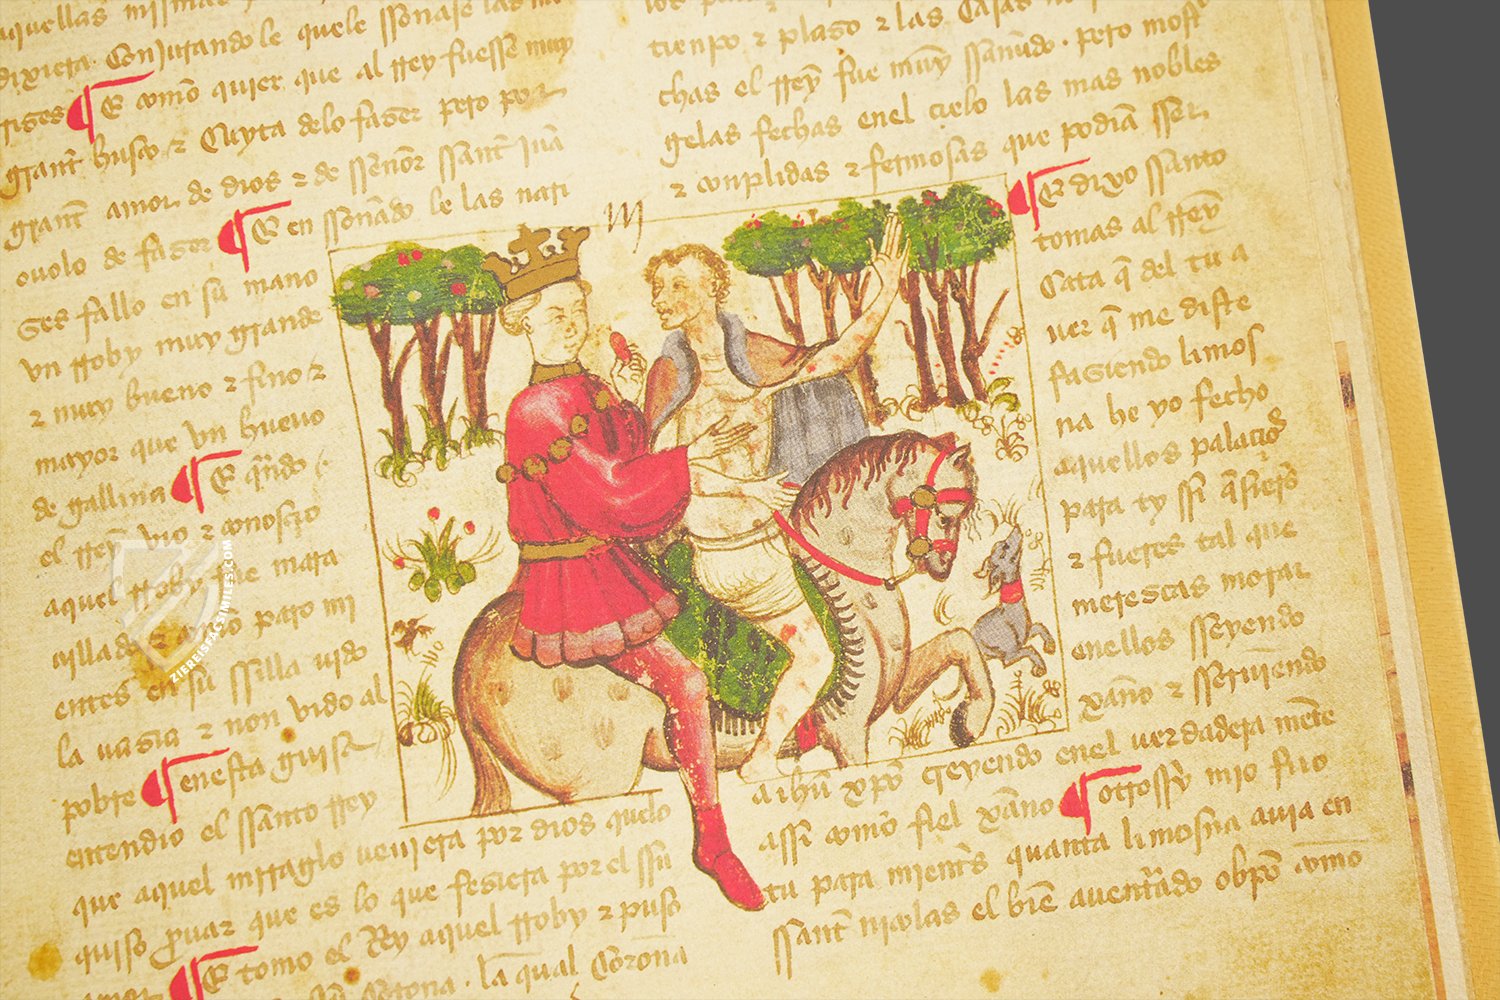 aquellas
dixiera. Conjurando le quele ssonase las na
rises ¶ E como quier que al rrey fuesse muy
grant busco z Cuyta delo faser pero por
grant amor de dios z de Señor Ssant Juā
ouolo de faser ¶ E en ssonādo le las nari
ses fallo en sū mano
vn rroby muy grande
z muy bueno z fino z
mayor que vn hueuo
de gallina ¶ E qn̄do
el rrey vio z conosçio
aquel rroby fue mara
uillado z como paro mi
entes en sū ssilla vido
la vasia z non vido al
pobre ¶ en esta guisa
entendio el ssanto rrey
que aquel miraglo veniera por dios quelo
quiso prouar que es lo que fesiera por el ssū
amor ¶ E tomo el Rey aquel rroby z puso
Corona. la qual Corona
tienpo z plaso z las Casas
chas el rrey fue muy ssanudo. pero most
gelas fechas enel cielo las mas nobles
z conplidas z fermosas que podiā sser.
¶ E dixo Ssanto
tomas al rrey
Cata q̄ del tu a
uer q̄ me diste
fasiendo limos
na he yo fecho
aquellos palaçios
para ty ssi q̄sieres
z fueres tal que
merescas morar
enellos sseyendo
xp̄ano z sseruiendo
a ihū xpō creyendo enel verdadera mēte
assi como fiel xp̄ano ¶ otrossy mio fijo
tu para mientes quanta limosna auia en
ssant nicolas el biē auenturado obpō como
ZIEREISFACSIMILES.COM